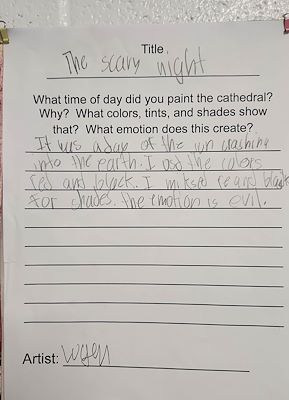 Title
The scary night
What time of day did you paint the cathedral?
Why? What colors, tints, and shades show
that? What emotion does this create?
It was a day of the un crashing
into the earth. I osd the colors
red and block. I miksed re and black
for shades. the emotion is evil.
Artist: